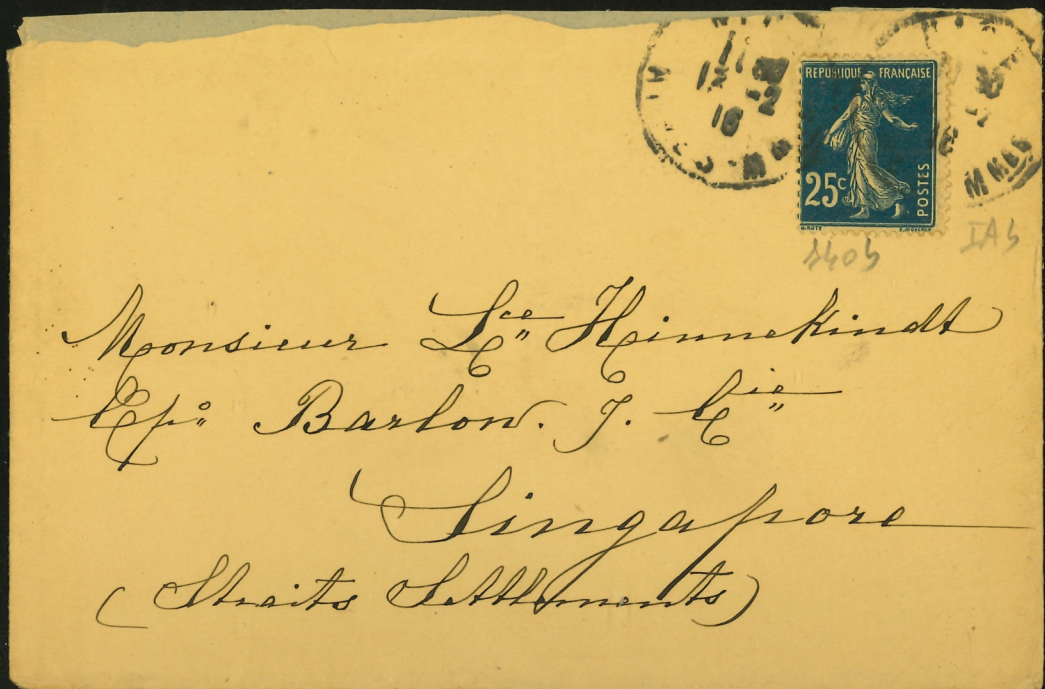 REPUBLIQUE FRANÇAISE
25c
POSTES
140b
IAb
Monsieur Lce Hinnekindt
Epo Barlow. J. Cie
Singapore
(Straits Settlements)